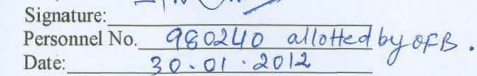 Signature:
Personnel No. 980240 allotted by OFB.
Date: 30.01.2012